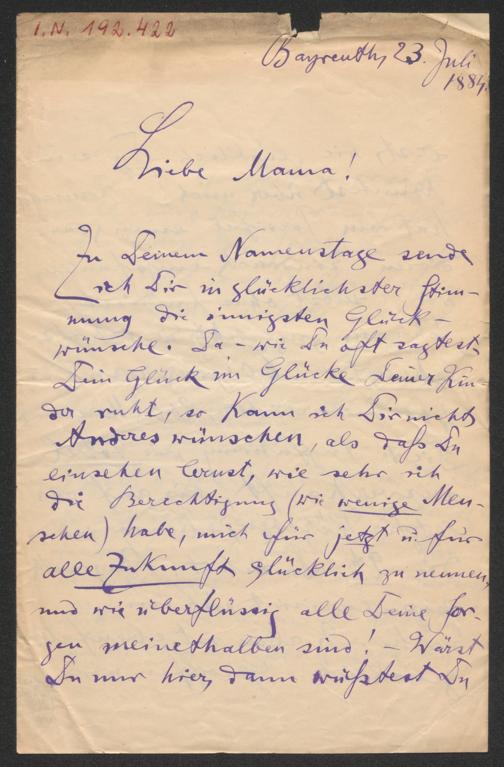 I.N. 192.422
Bayreuth, 23. Juli
1884.
Liebe Mama!
Zu Deinem Namenstage sende
ich Dir in glücklichster Stim-
mung die innigsten Glück-
wünsche. Da – wie Du oft sagtest
Dein Glück im Glücke Deiner Kin-
der ruht, so kann ich Dir nichts
Anderes wünschen, als daß Du
einsehen lernst, wie sehr ich
die Berechtigung (wie wenige Men-
schen) habe, mich für jetzt u. für
alle Zukunft glücklich zu nennen,
und wie überflüssig alle Deine Sor-
gen meinethalben sind! – Wärst
Du nur hier, dann wüßtest Du